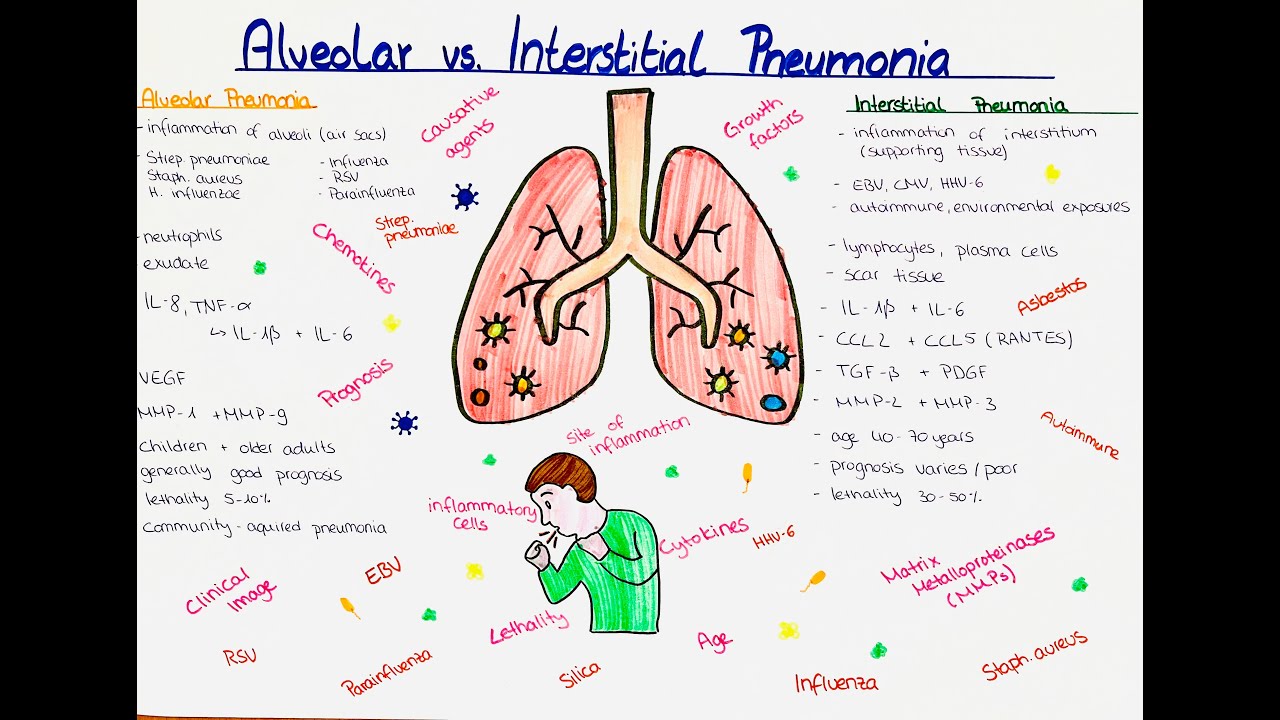 Alveolar vs. Interstitial Pneumonia
Alveolar Pneumonia
- inflammation of alveoli (air sacs)
- Strep. pneumoniae
Staph. aureus
H. influenzae
- Influenza
- RSV
- Parainfluenza
- neutrophils
exudate
IL-8, TNF-α
↳ IL-1β + IL-6
VEGF
MMP-1 + MMP-9
children + older adults
generally good prognosis
lethality 5-10%
community-aquired pneumonia
Causative
agents
Strep.
pneumoniae
Chemokines
Prognosis
Growth
factors
site of
inflammation
inflammatory
cells
Cytokines
HHV-6
Interstitial Pneumonia
- inflammation of interstitium
(supporting tissue)
- EBV, CMV, HHV-6
- autoimmune, environmental exposures
- lymphocytes, plasma cells
- scar tissue
- IL-1β + IL-6
- CCL2 + CCL5 (RANTES)
- TGF-β + PDGF
- MMP-2 + MMP-3
- age 40-70 years
- prognosis varies/poor
- lethality 30-50%
Asbestos
Autoimmune
Matrix
Metalloproteinases
(MMPs)
Clinical
Image
EBV
Lethality
Age
RSV
Parainfluenza
Silica
Influenza
Staph. aureus